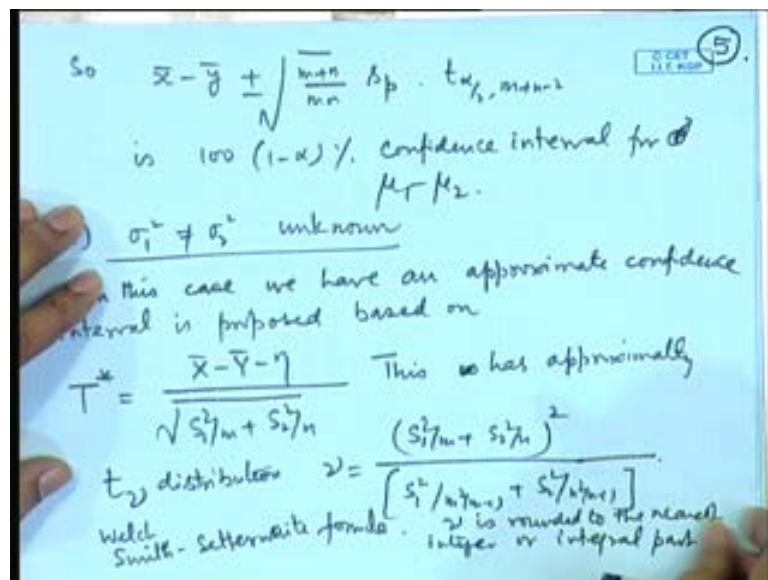 5.
So x̄ - ȳ ± √(m+n / mn) sp . t α/2, m+n-2
is 100 (1-α) %. confidence interval for
μ1 - μ2.
) σ1² ≠ σ2² unknown
this case we have an approximate confidence
nterval is proposed based on
T* = (X̄ - Ȳ - η) / √(S1²/m + S2²/n) This has approximally
tν distribution ν = (S1²/m + S2²/n)² / [S1²/m²(m-1) + S2²/n²(n-1)].
Welch
Smith - Satterwaite formula. ν is rounded to the nearest
integer or integral part